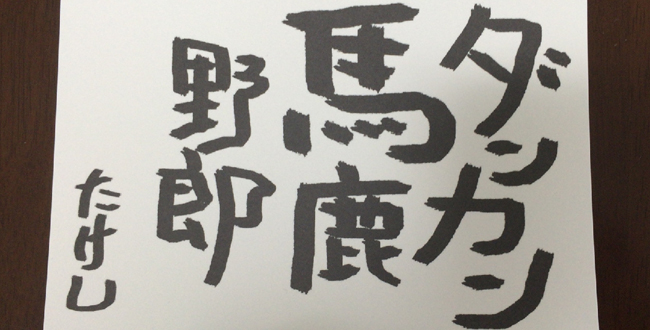 ダンカン
馬鹿
野郎
たけし